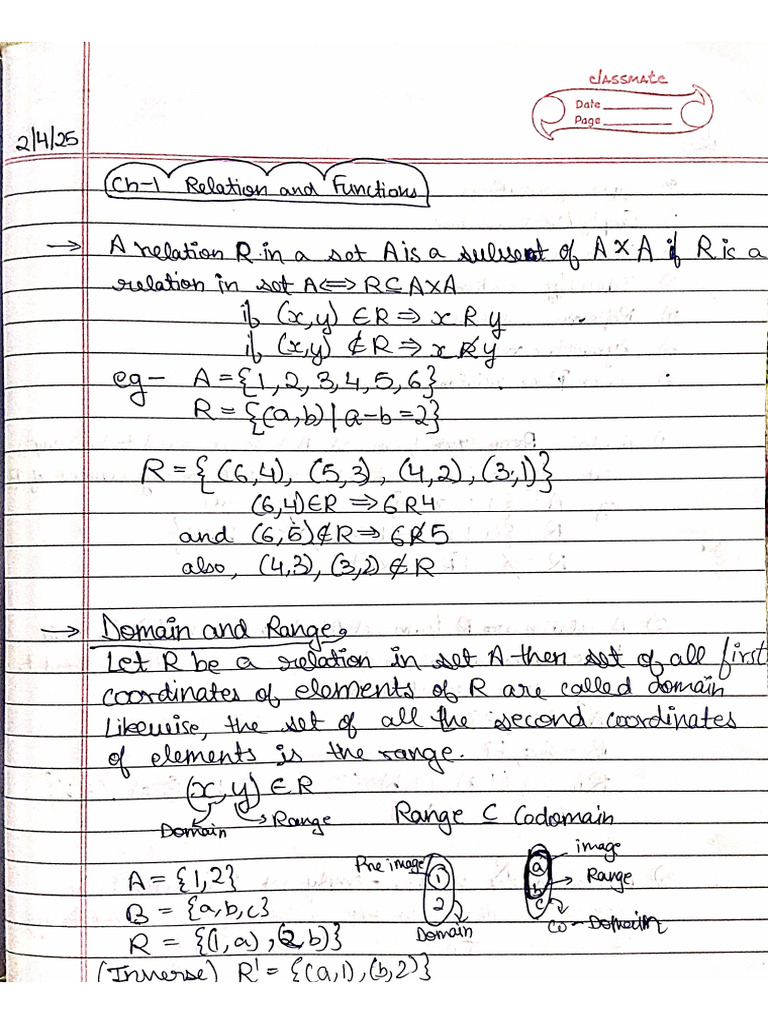 classmate
Date
Page
2/4/25
Ch-1 Relation and Functions
→ A relation R in a set A is a subset of A×A if R is a
relation in set A⟺R⊆A×A
if (x,y) ∈R ⇒ x R y
if (x,y) ∉R ⇒ x R̸ y
eg- A = {1,2,3,4,5,6}
R = {(a,b) | a-b=2}
R = {(6,4), (5,3), (4,2), (3,1)}
(6,4)∈R ⇒ 6R4
and (6,5)∉R ⇒ 6R̸5
also, (4,3), (3,2) ∉ R
→ Domain and Range
Let R be a relation in set A then set of all first
coordinates of elements of R are called domain
Likewise, the set of all the second coordinates
of elements is the range.
(x,y) ∈ R
Domain Range Range ⊆ Codomain
A = {1,2}
B = {a,b,c}
R = {(1,a), (2,b)}
(Inverse) R' = {(a,1), (b,2)}
Pre image
1
2
Domain
a
b
c
image
Range
Co-Domain